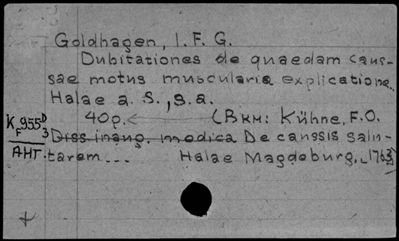 Goldhagen, I. F. G.
Dubitationes de quaedam caus-
sae motus muscularis explicatione.
Halae a. S., s.a.
40p. (Вкн: Kühne, F.O.
KF 955D/3 Diss. inaug. medica De caussis salu-
АНТ. tarem... Halae Magdeburg., 1763)